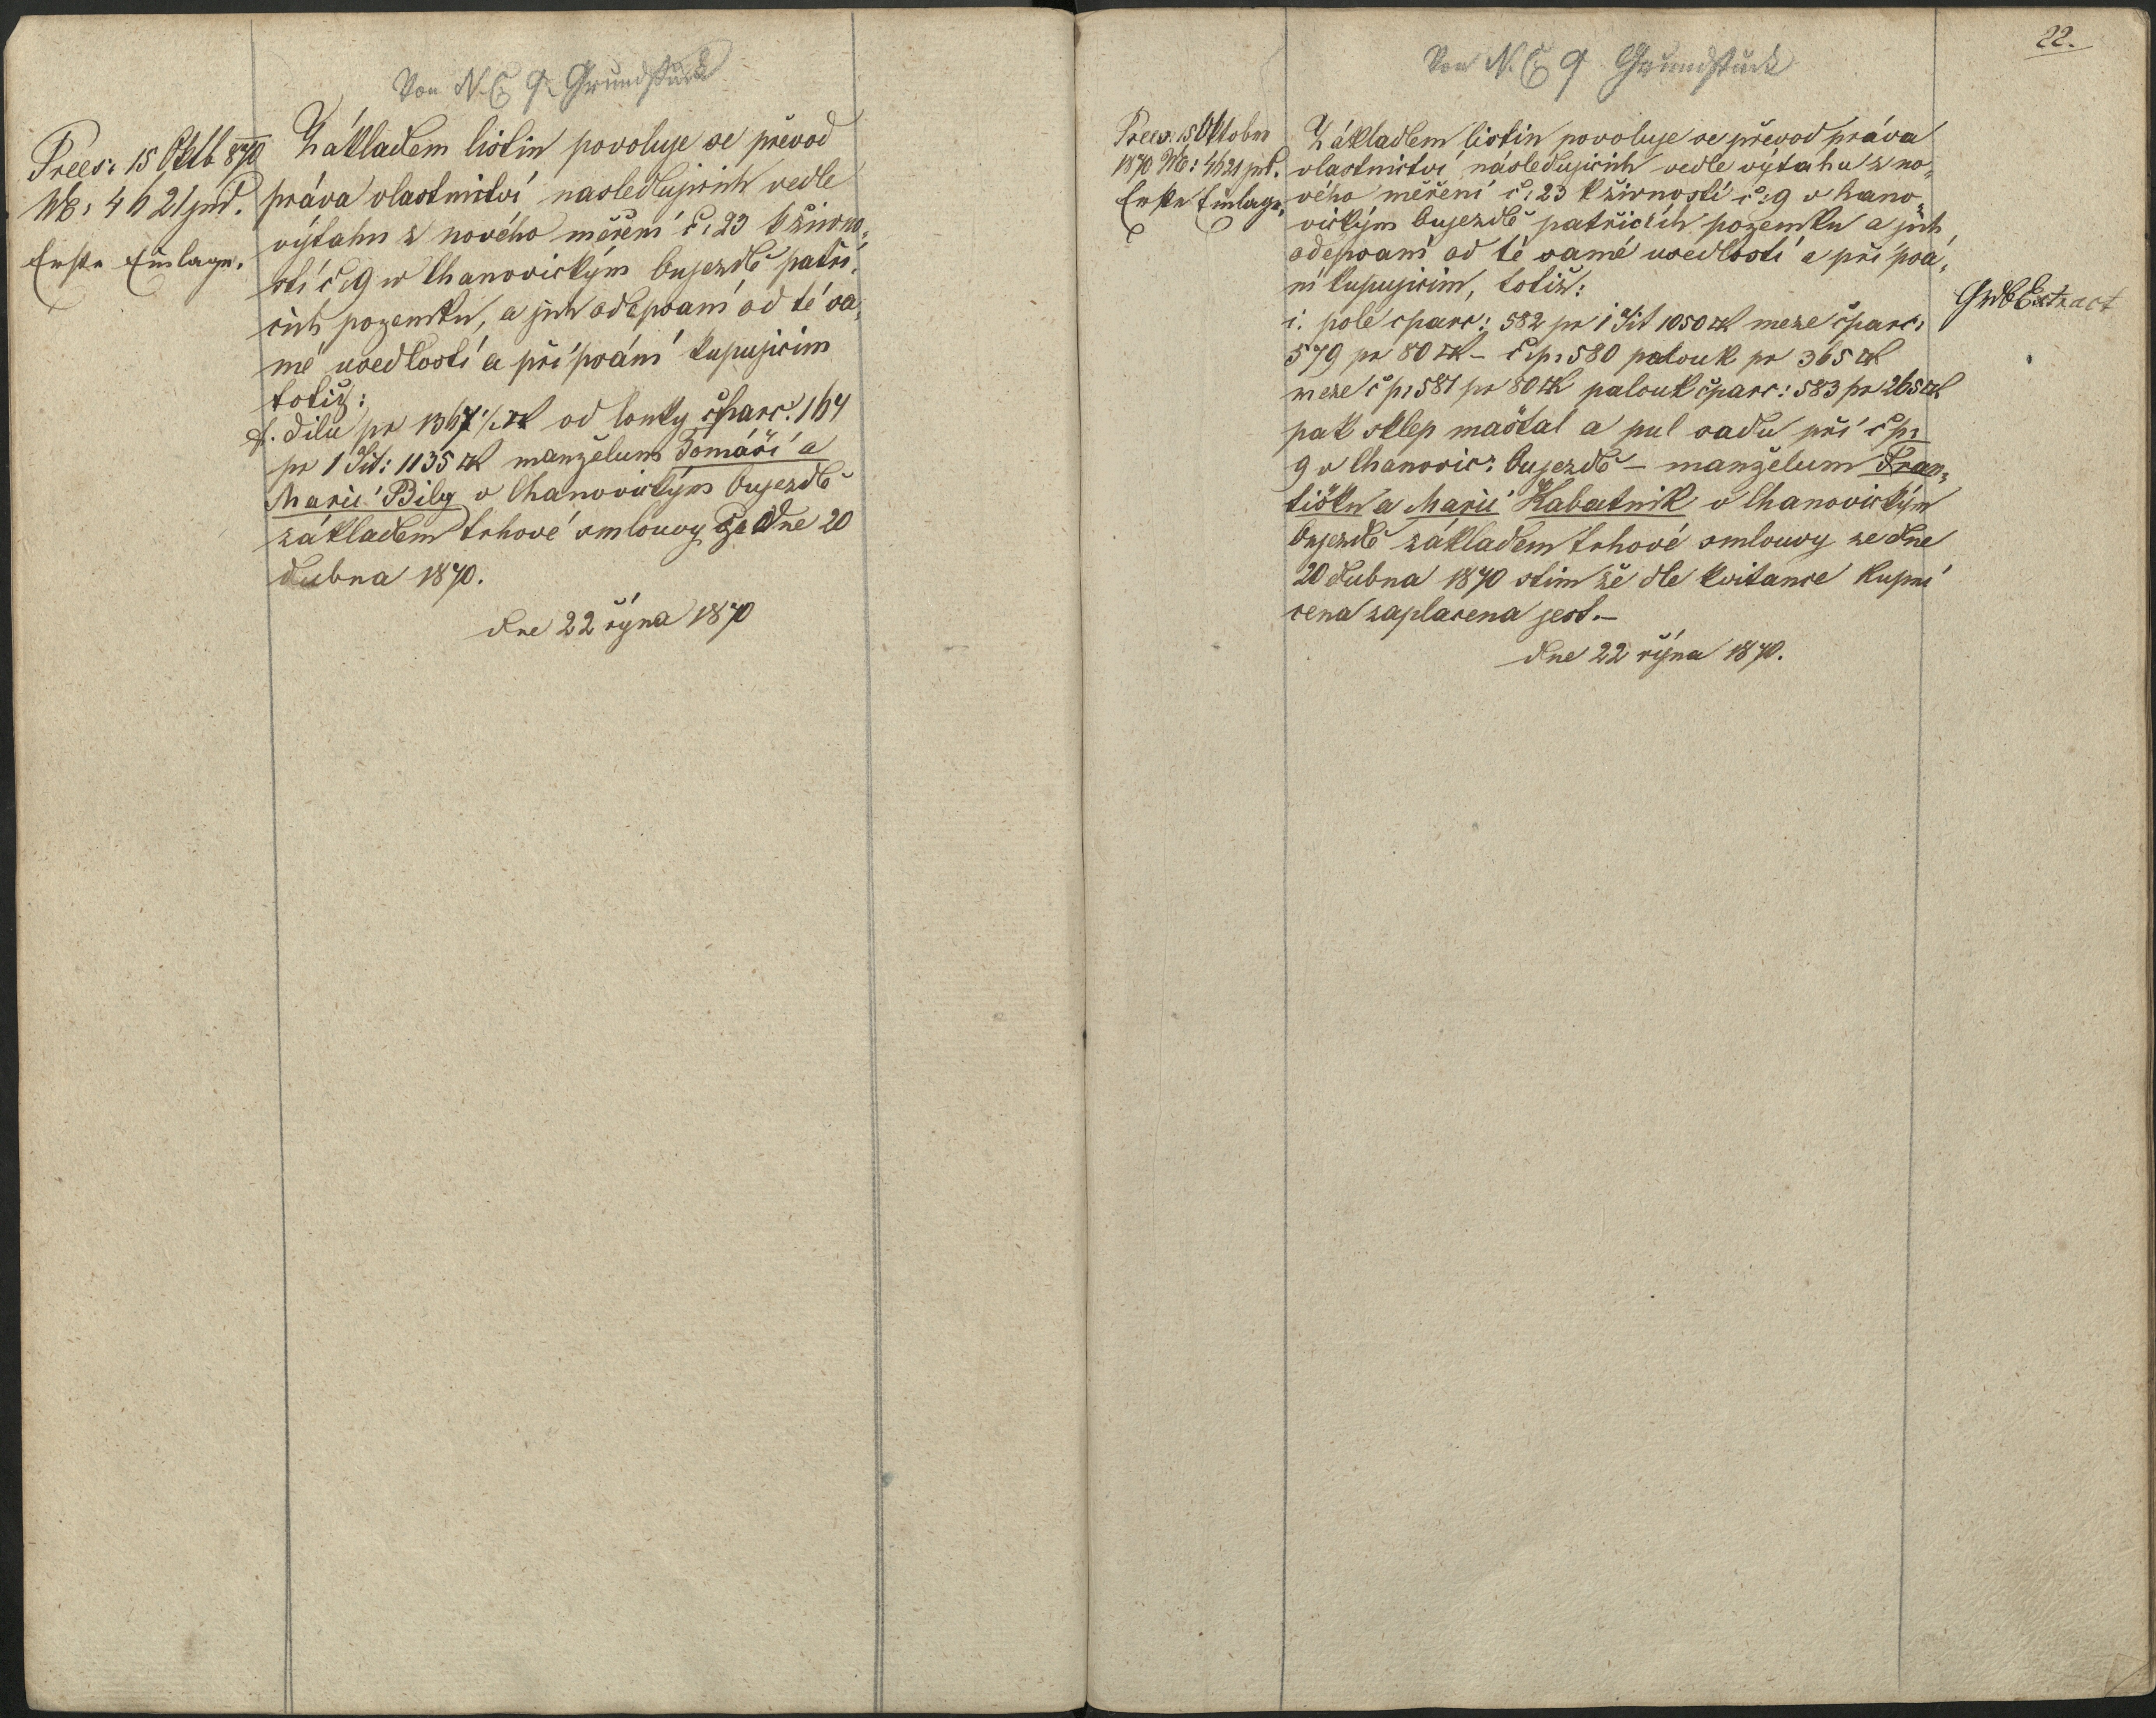 Von N. C. 9 Grundstück
Præs: 15 Oktb 870
NE: 4621 jud.
Erste Einlage.
Základem listin povoluje se převod
práva vlastnictví nasledujicich vedle
výtahu z nového měření č: 23 k živno„
sti č: 9 w Chanovickým Oujezdě patři„
cich pozemku, a jich odepsaní od té sa„
mé usedlosti a při psání kupujicim
totiž:
f. dilu pr 1367 1/2 □° od louky čparc. 164
pr 1 Jit: 1135 □° manželum Tomáši a
Marii Bily v Chanovickým Oujezdě
základem trhové smlouvy ze dne 20
dubna 1870.
dne 22 řijna 1870
22.
Von N. C. 9 Grundstück
Præs. 15 Oktober
1870 NE: 4621 jud.
Erste Einlage.
Základem listin povoluje se převod práva
vlastnictví následujicich vedle výtahu z no„
vého měření č: 23 k živnosti č: 9 v Hano„
vickým Oujezdě patřicích pozemku a jich
odepsaní od té samé usedlosti a při psá„
ní kupujicim, totiž:
i. pole čparc: 582 pr 1 Jit 1050 □° meze čparc:
579 pr 80 □° – č:p: 580 palouk pr 365 □°
meze č p: 581 pr 80 □° palouk čparc: 583 pr 265 □°
pak sklep maštal a pul sadu při č p:
9 v Chanovic: Oujezdě – manželum Fran„
tišku a Marii Kabatnik v Chanovickým
Oujezdě základem trhové smlouvy ze dne
20 dubna 1870 stim že dle kvitance kupní
cena zaplacena jest.–
dne 22 řijna 1870.
GrdbExtract